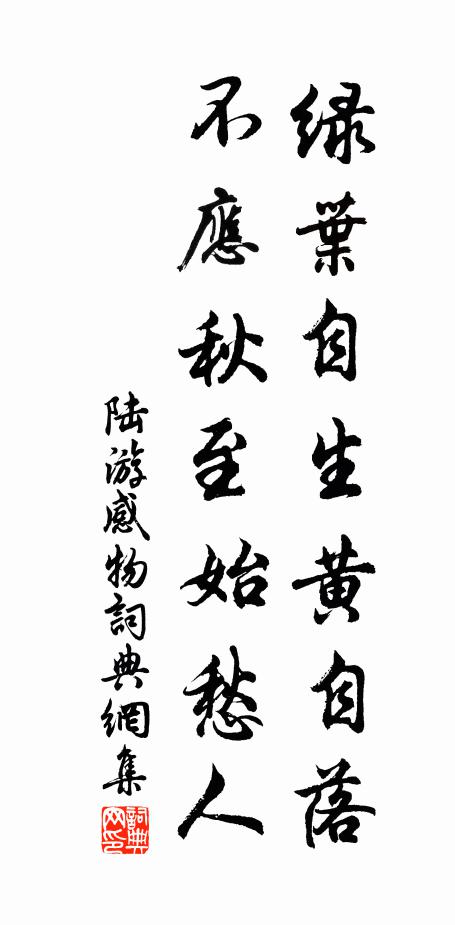 綠葉自生黃自落
不應秋至始愁人
陸游感物詞典網集
詞典网印